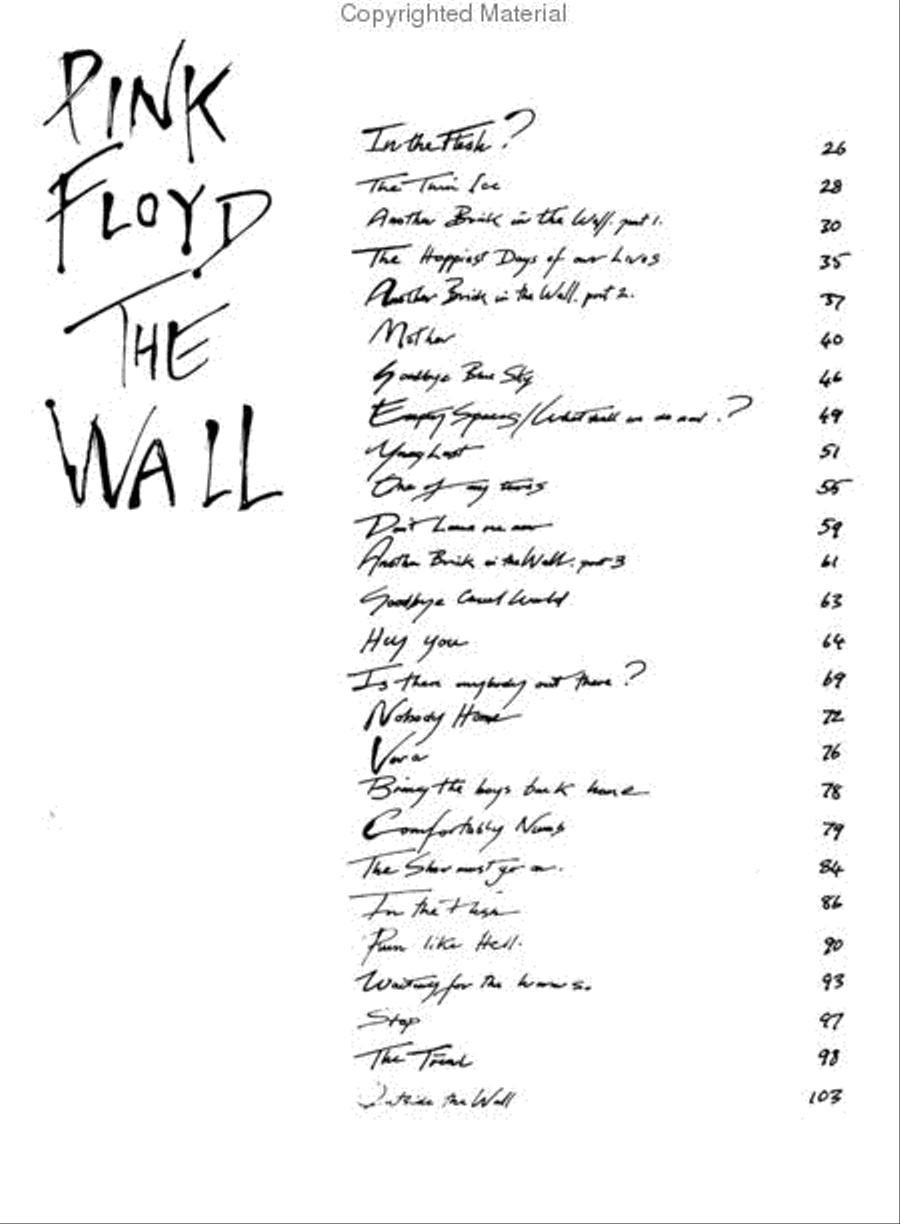 Copyrighted Material
PINK
FLOYD
THE
WALL
In the Flesh? 26
The Thin Ice 28
Another Brick in the Wall. part 1. 30
The Happiest Days of our Lives 35
Another Brick in the Wall. part 2. 37
Mother 40
Goodbye Blue Sky 46
Empty Spaces/What shall we do now.? 49
Young Lust 51
One of my turns 55
Don't Leave me now 59
Another Brick in the Wall. part 3 61
Goodbye Cruel World 63
Hey you 64
Is there anybody out there? 69
Nobody Home 72
Vera 76
Bring the boys back home 78
Comfortably Numb 79
The Show must go on. 84
In the Flesh 86
Run like Hell. 90
Waiting for the worms. 93
Stop 97
The Trial 98
Outside the Wall 103